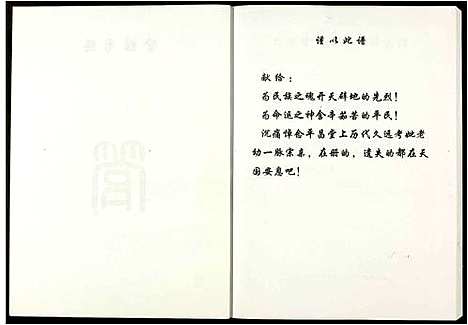 谨以此谱
献给：
为民族之魂开天辟地的先烈！
为命运之神含辛茹苦的平民！
沉痛悼念平昌堂上历代久远考妣老
幼一脉宗亲，在册的，遗失的都在天
国安息吧！